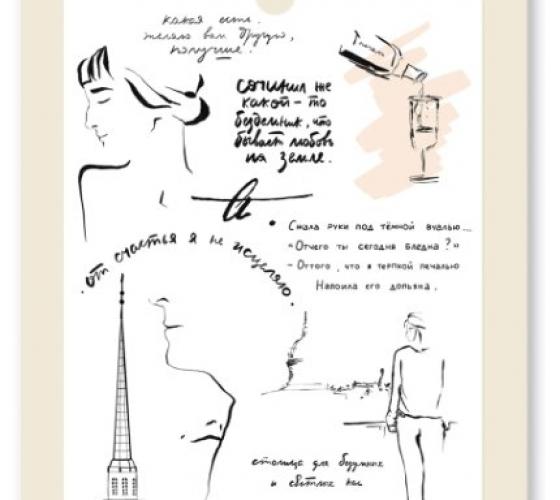 какая есть.
желаю вам другую,
получше.
печаль
Сочинил же
какой-то
бездельник, что
бывает любовь
на земле.
Сжала руки под тёмной вуалью...
"Отчего ты сегодня бледна?"
- Оттого, что я терпкой печалью
Напоила его допьяна.
от счастья я не исцеляю.
столица для безумных
и светлых нас